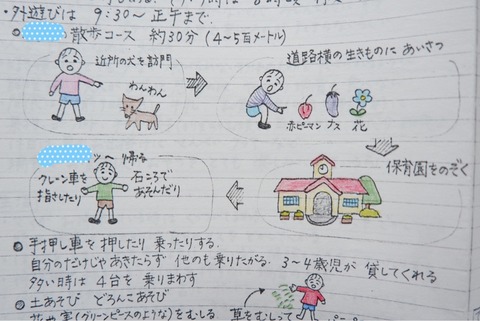 ・外遊びは 9:30～正午まで.
散歩コース 約30分 (4～5百メートル)
近所の犬を訪問
わんわん
道路横の生きものに あいさつ
赤ピーマン ナス 花
保育園をのぞく
ッヘ帰る
クレーン車を
指さしたり
石ころで
あそんだり
手押し車を 押したり 乗ったりする.
自分のだけじゃあきたらず 他のも乗りたがる. 3～4歳児が 貸してくれる
多い時は 4台を 乗りまわす
土あそび どろんこあそび
花や実(グリーンピースのような)をむしる
草をむしって